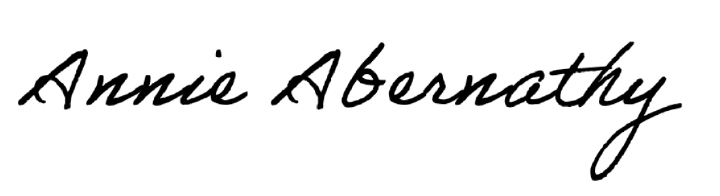 Annie Abernathy